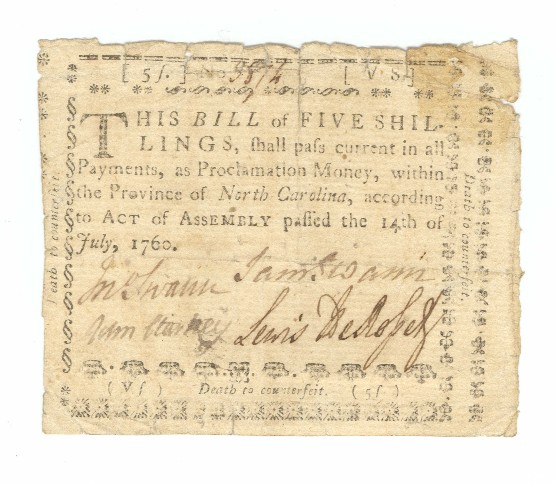 [ 5ſ. ] No 3872 [ V. S. ]
THIS BILL of FIVE SHIL-
LINGS, ſhall paſs current in all
Payments, as Proclamation Money, within
the Province of North-Carolina, according
to ACT of ASSEMBLY paſſed the 14th of
July, 1760.
Jno Swann Sam Swann
Jno Starkey Lewis DeRoſset
( Vſ ) Death to counterfeit. ( 5ſ )
Death to counterfeit
Death to counterfeit.